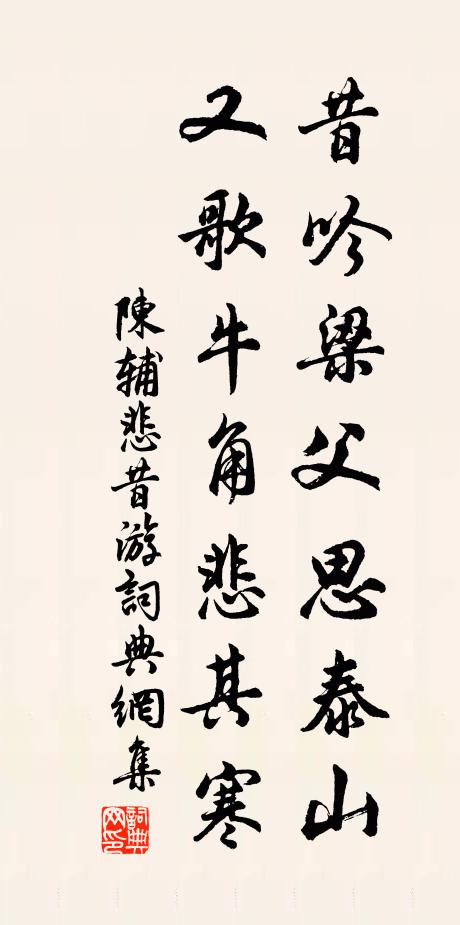 昔吟梁父思泰山
又歌牛角悲其寒
陳辅悲昔游詞典網集
詞典
网印